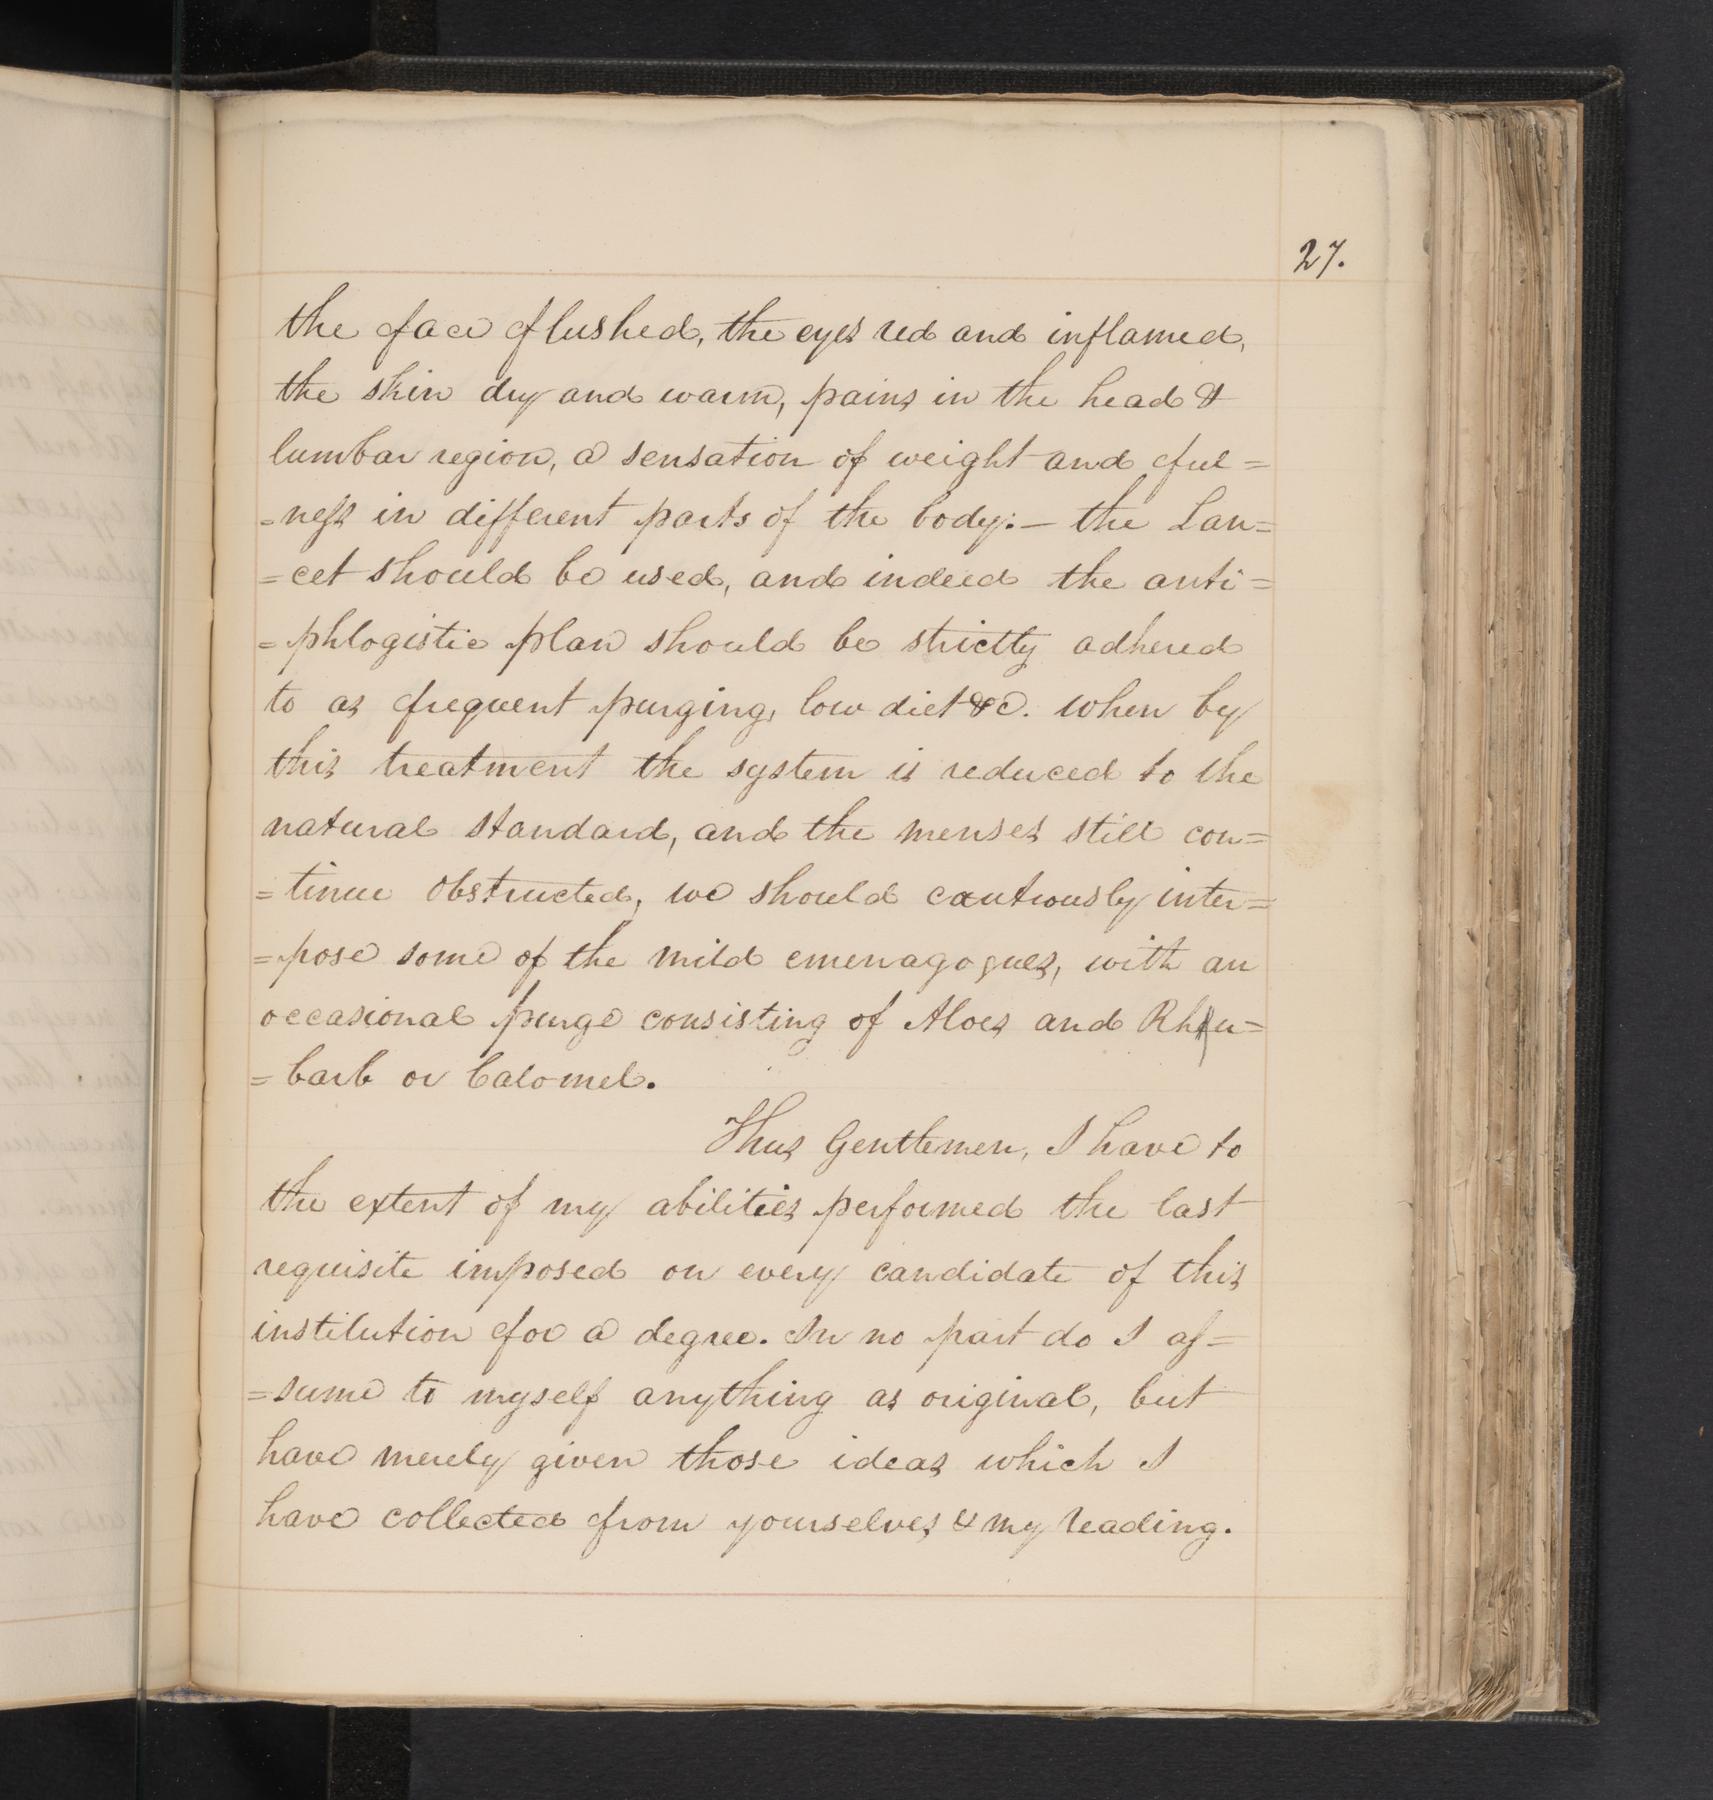 27.
the face flushed, the eyes red and inflamed,
the skin dry and warm, pains in the head &
lumbar region, a sensation of weight and ful=
=ness in different parts of the body:— the Lan=
=cet should be used, and indeed the anti=
=phlogistic plan should be strictly adhered
to as frequent purging, low diet &c. when by
this treatment the system is reduced to the
natural standard, and the menses still con=
=tinue obstructed, we should cautiously inter=
=pose some of the mild emenagogues, with an
occasional purge consisting of Aloes and Rhu=
=barb or Calomel.
Thus Gentlemen, I have to
the extent of my abilities performed the last
requisite imposed on every candidate of this
institution for a degree. In no part do I as=
=sume to myself anything as original, but
have merely given those ideas which I
have collected from yourselves & my reading.